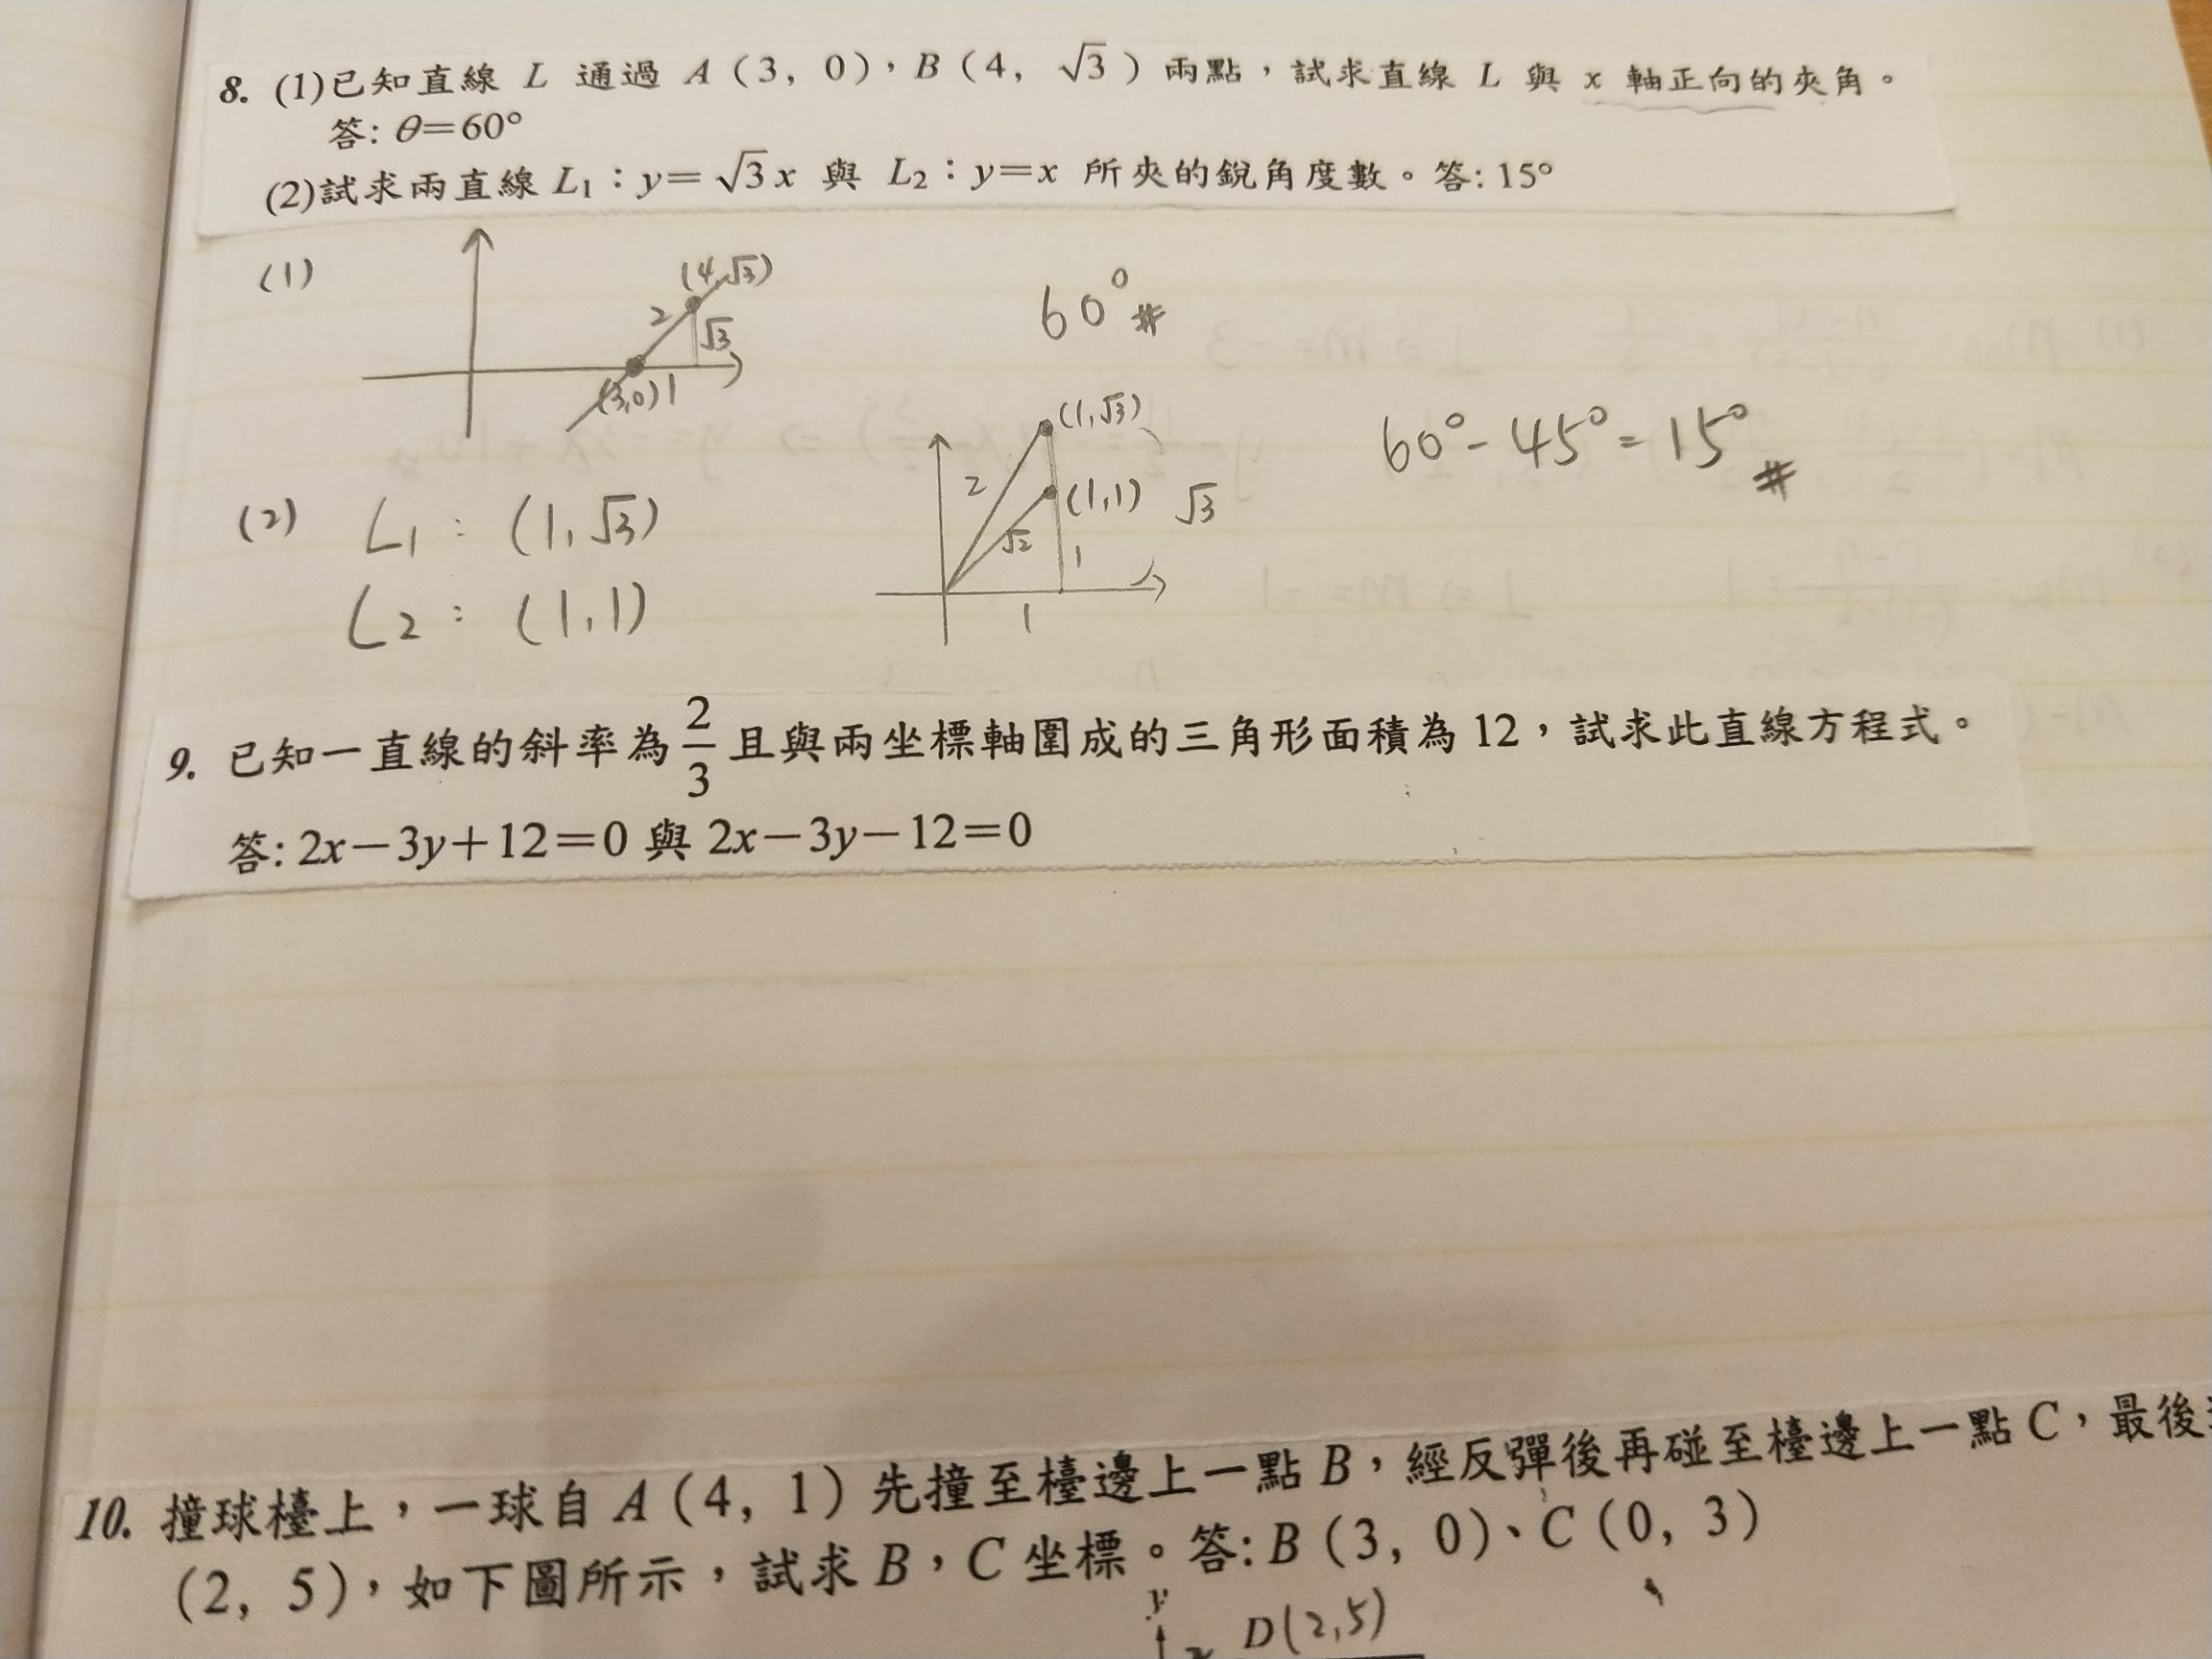 8. (1)已知直線 L 通過 A (3, 0),B (4, √3) 兩點,試求直線 L 與 x 軸正向的夾角。
答: θ=60°
(2)試求兩直線 L₁:y=√3x 與 L₂:y=x 所夾的銳角度數。答: 15°
(1)
(4,√3)
2
√3
(3,0) 1
60° #
(2) L₁ : (1,√3)
L₂ : (1,1)
(1,√3)
2
(1,1) √3
√2
1
1
60°- 45° = 15° #
9. 已知一直線的斜率為 2/3 且與兩坐標軸圍成的三角形面積為 12,試求此直線方程式。
答: 2x-3y+12=0 與 2x-3y-12=0
10. 撞球檯上,一球自 A (4, 1) 先撞至檯邊上一點 B,經反彈後再碰至檯邊上一點 C,最後
(2, 5),如下圖所示,試求 B,C 坐標。答: B (3, 0)、C (0, 3)
y
D(2,5)